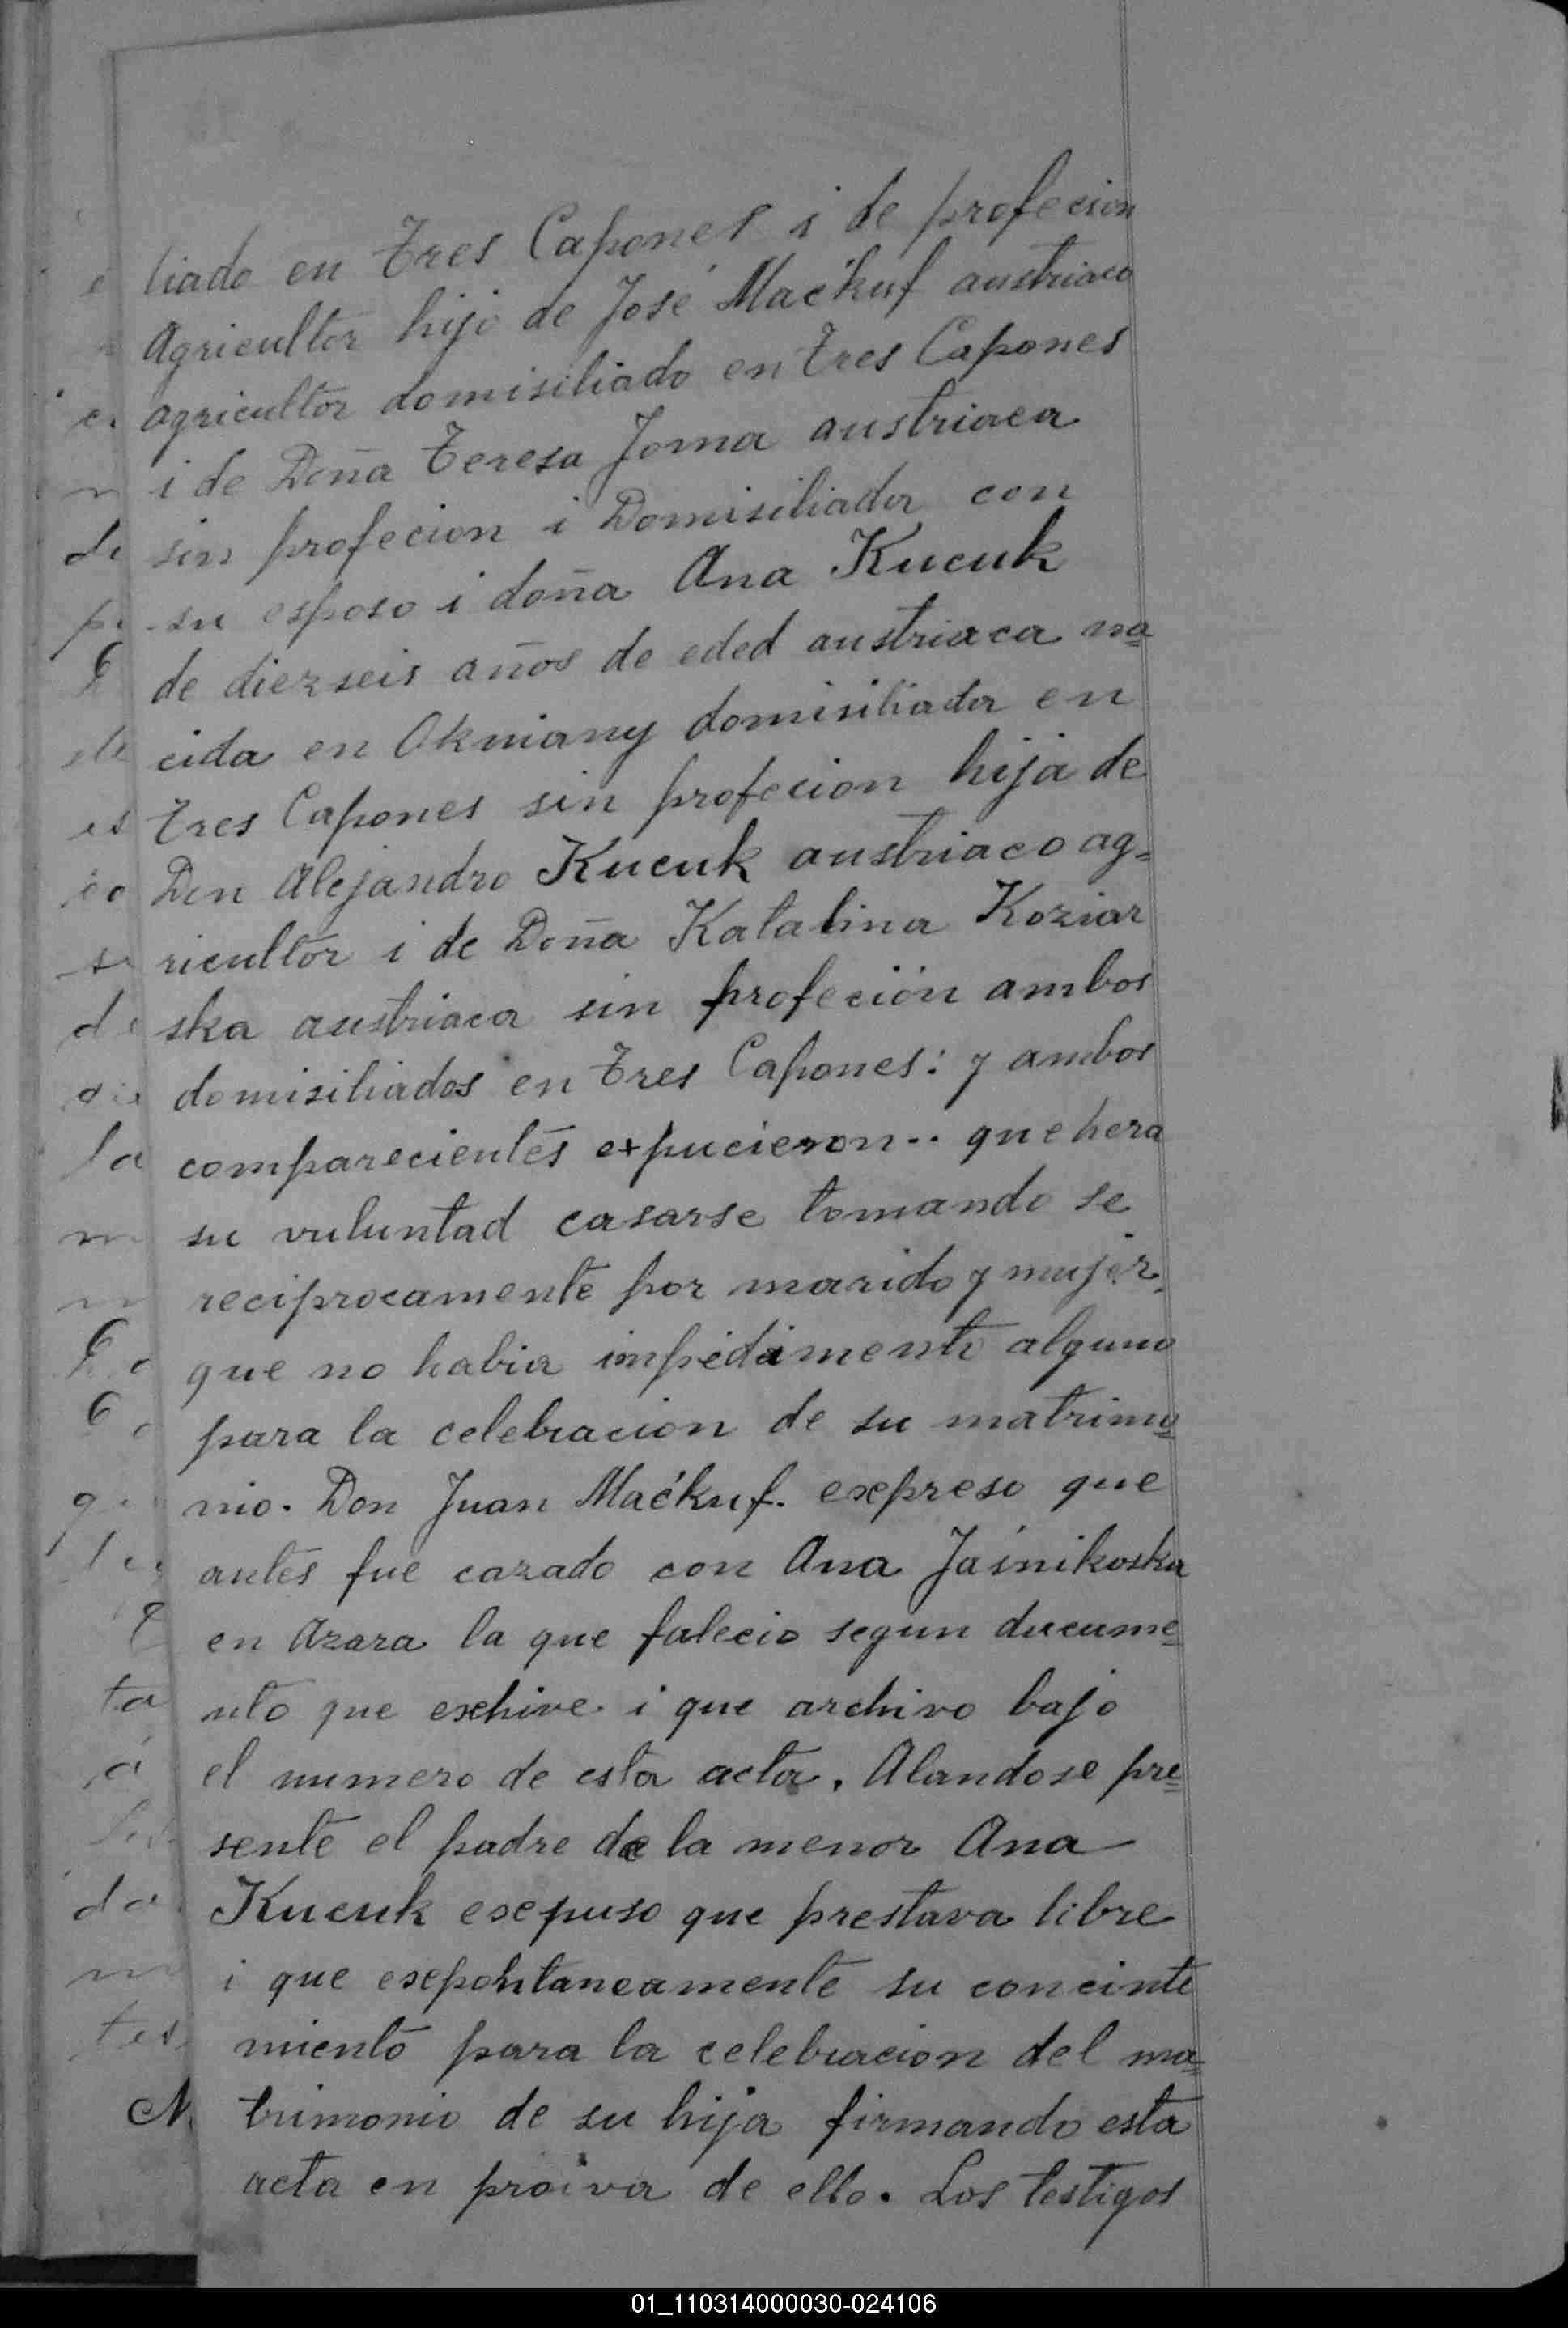 liado en Tres Capones i de profecion
Agricultor hijo de José Maćkuf austriaco
agricultor domisiliado en Tres Capones
i de Doña Teresa Joma austriaca
sin profecion i Domisiliada con
su esposo i doña Ana Kucuk
de diezseis años de eded austriaca na=
cida en Okniany domisiliada en
Tres Capones sin profecion hija de
Don Alejandro Kucuk austriaco ag=
ricultor i de Doña Katalina Koziar
ska austriaca sin profeción ambos
domisiliados en Tres Capones: y ambos
comparecientes expucieron.. que hera
su vuluntad casarse tomando se
reciprocamente por marido y mujer.
que no habia impedimento alguno
para la celebracion de su matrimo=
nio. Don Juan Maćkuf. exepreso que
antes fue cazado con Ana Jaśnikoska
en Azara la que falecio segun ducume=
nto que exhive i que archivo bajo
el numero de esta acta. Alandose pre=
sente el padre de la menor Ana
Kucuk exepuso que prestava libre
i que exepohtaneamente su concinte
miento para la celebracion del ma=
trimonio de su hija firmando esta
acta en proiva de ello. Los testigos
01_110314000030-024106